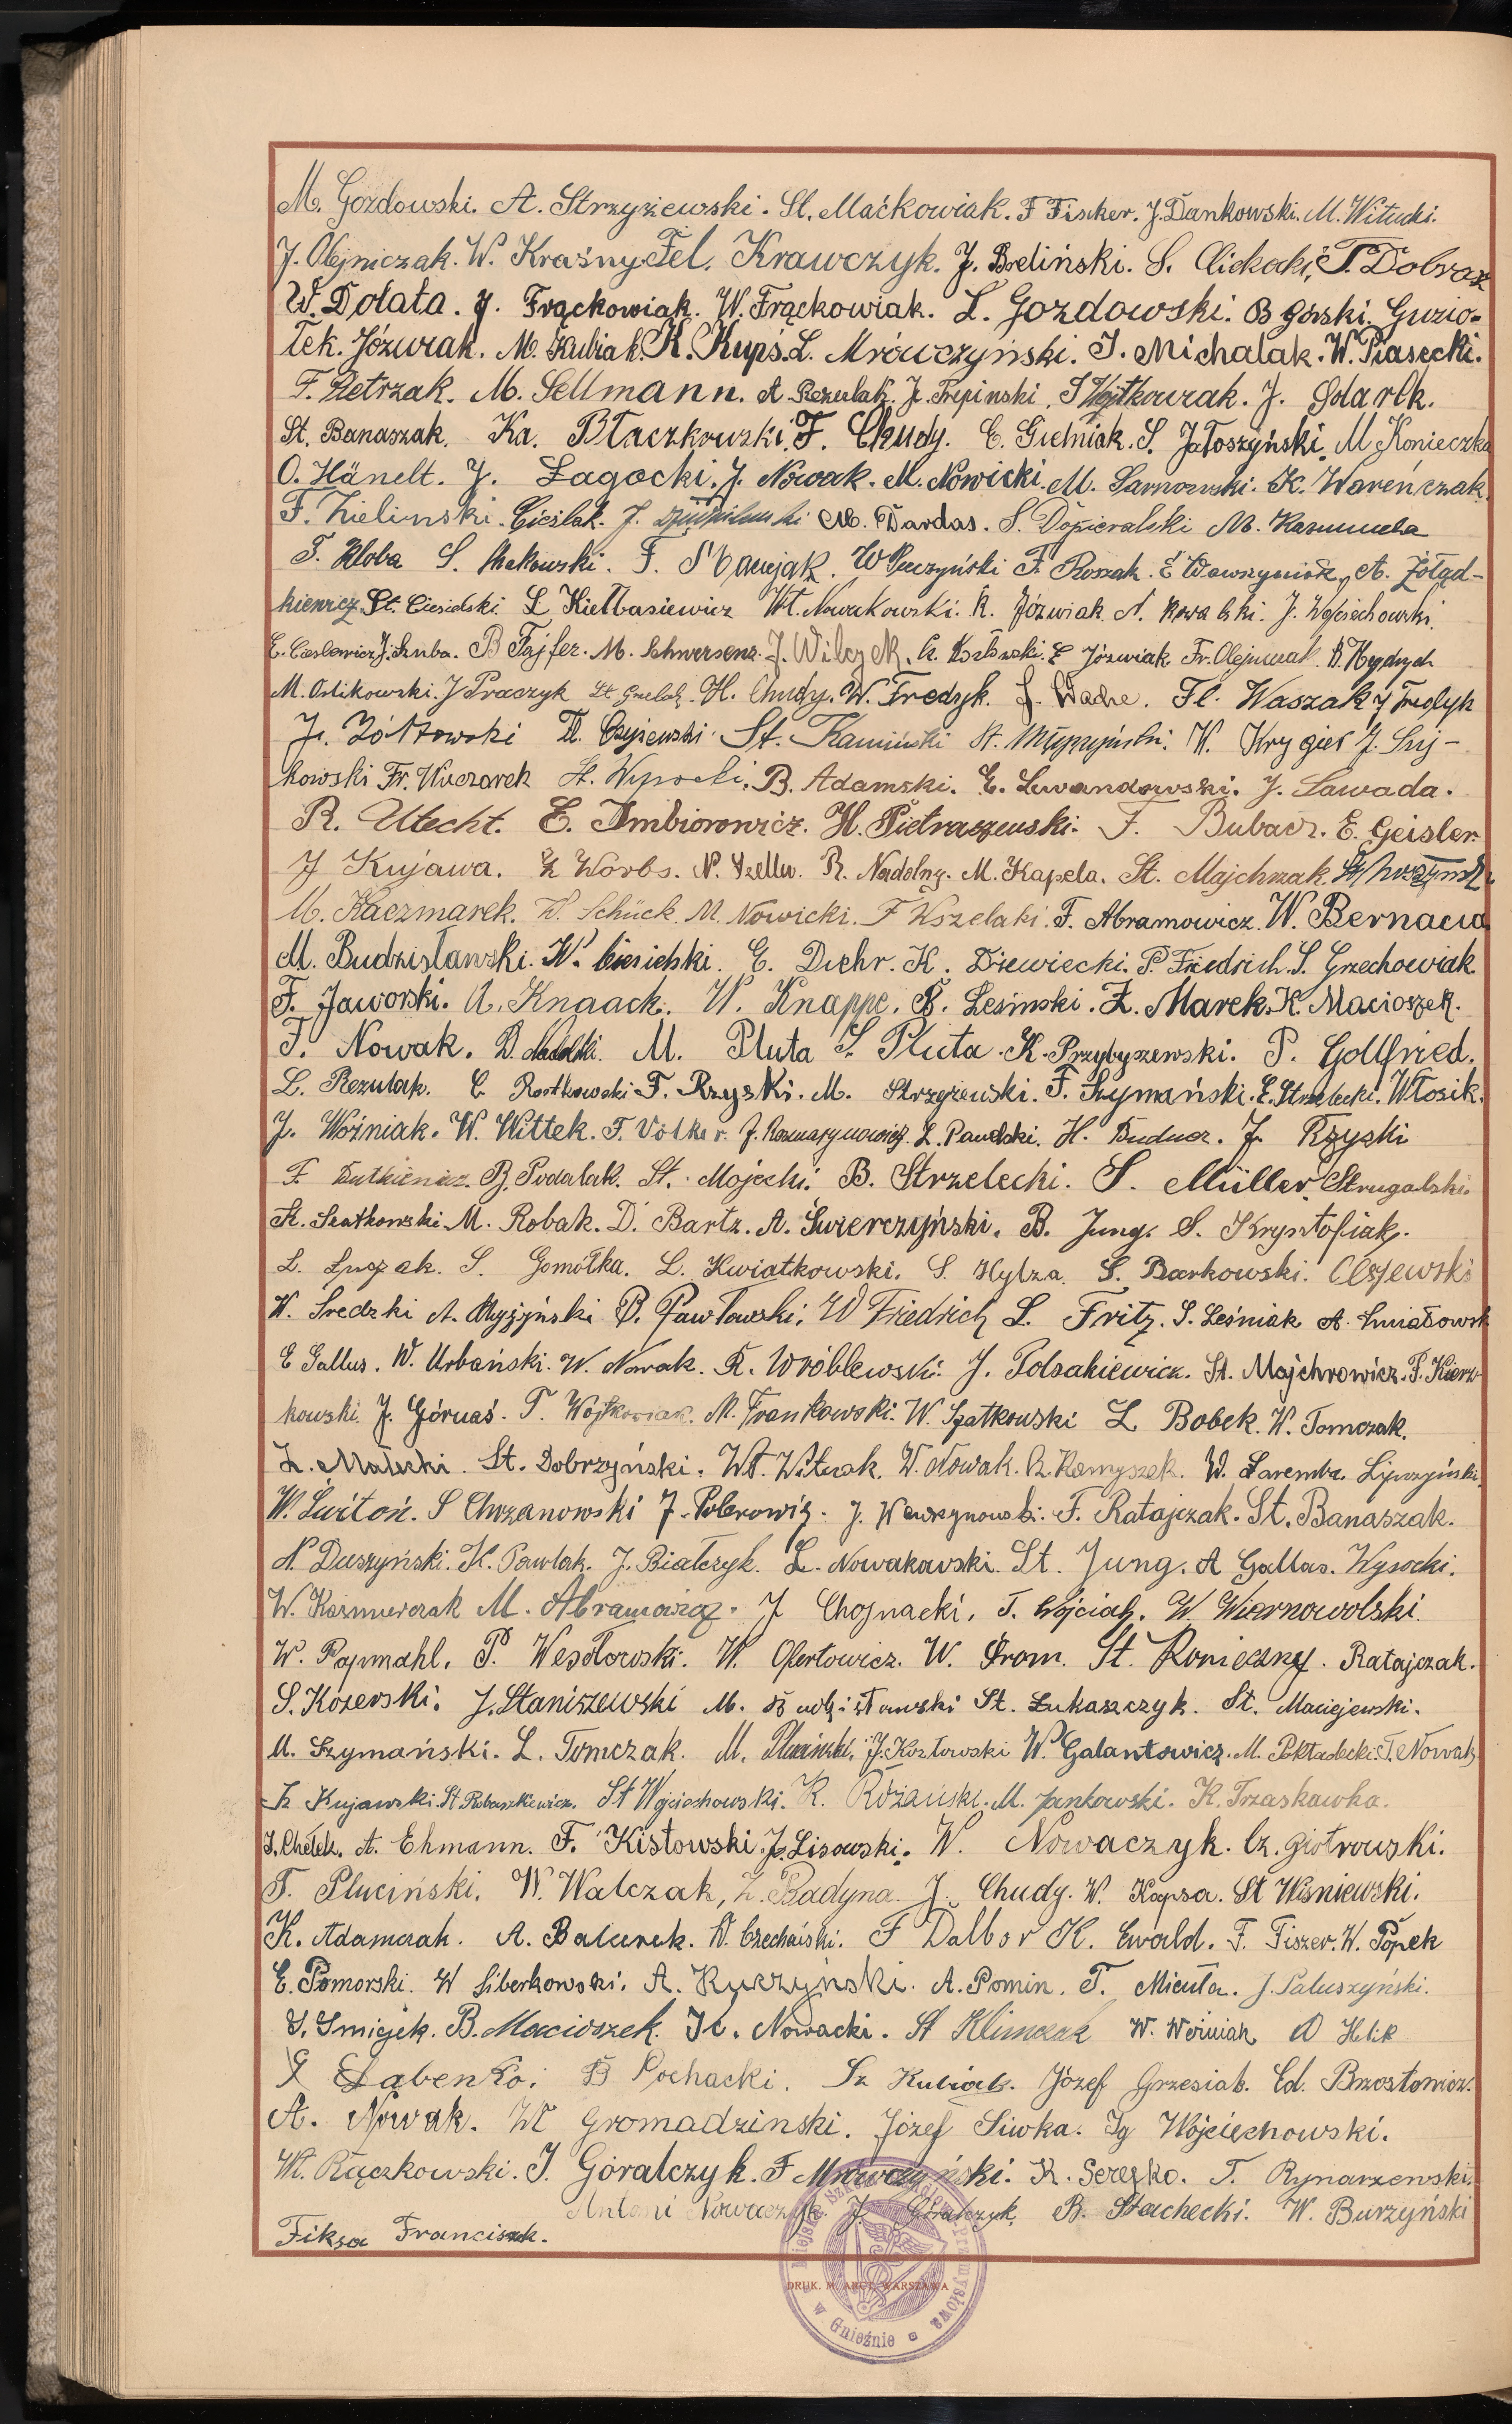 M. Gozdowski. A. Strzyżewski. St. Maćkowiak. F Fischer. J. Dankowski. M. Witucki.
J. Olejniczak. W. Kraśny. Fel. Krawczyk. J. Breliński. S. T. Dobrosz
W. Dolata. J. Frąckowiak. W. Frąckowiak. L. Gozdowski. B Górski. Guzio-
łek. Józwiak. M. Kubiak. K. Kupś. L. Mrówczyński. J. Michalak. W. Piasecki.
F. Pietrzak. M. Sellmann. A. Rezulak. J. Trepinski. S Wojtkowiak. J.
St. Banaszak. Ka. Błaczkowski. F. Chudy. C. Gielniak. S. Jałoszyński. M Konieczka
O. Hänelt. J. Łagocki. J. Nowak. M. Nowicki. M. Sarnowski. K. Wareńczak.
F. Zielinski. Cieślak. J. M. Dardas. S. Dopieralski M.
T. Kloba S. Makowski. F. W Pluczyński F. Roszak. E Wawrzyniak, A. Żołąd-
kiewicz. St. Ciesielski. L Kiełbasiewicz Wł. Nowakowski. R. Jóżwiak. N. Kowalski. J. Wojciechowski.
E. Cieslewicz. J. Szuba. B Fajfer. M. Schwersenz. J. Wilczek. K. Kozłowski. E Józwiak. Fr. Olejniczak. B. Heydrych
M. Ostikowski. J Praczyk St. H. Chudy. W. Fredzyk. J. Wache. Fl. Waszak J Fredyk
J. Żółtowski Fl. Czyżewski. St. Kamiński St. W. Krygier J. Suj-
kowski Fr. Kuczorek St. Wysocki. B. Adamski. E. Lewandowski. J. Zawada.
R. Utecht. E. Ambiorowicz. H. Pietraszewski. F. Bubacz. E. Geisler.
J Kujawa. Worbs. N. R. Nadolny. M. Kapela. St. Majchrzak.
M. Kaczmarek. Schück. M. Nowicki. F Wszelaki. F. Abramowicz. W. Bernacia
M. Budzisławski. W. Ciesielski. E. Diehr. K. Drewiecki. P. Friedrich. S. Grzechowiak
F. Jaworski. A. Knaack. W. Knappe. B. Lesinski. L. Marek. K. Macioszek.
F. Nowak. D. Nadolski. M. Pluta S. Pluta. K. Przybyszewski. P. Gottfried.
L. Rezulak. C Rostkowski F. Rzyski. M. Strzyżewski. F. Szymański. E. Strzelecki. Włosik.
J. Woźniak. W. Wittek. F. Völker. J. Kazmarynowicz. L. Pawelski. H. Budner. J. Rzyski
F. Dutkiewicz. B. Podalak. St. Mojecki. B. Strzelecki. S. Müller. Strugalski.
St. Szatkowski. M. Robak. D. Bartz. A. Świerczyński. B. Jung. S. Krysztofiak.
L. S. Gomółka. L. Kwiatkowski. S. Hylza. S. Barkowski. Olszewski
W. Średzki A. Myszyński B. Pawłowski. W Friedrich L. Fritz. S. Leśniak A. Kwiatkowsk
E Gallus. W. Urbański. W. Nowak. R. Wróblewski. J. Polsakiewicz. St. Majchrowicz. P. Kierz-
kowski. J. Górnaś. T. Wojtkowiak. M. Frankowski. W. Szatkowski L Bobek. W. Tomczak.
L. Małecki. St. Dobrzyński. Wł. Witwak. W. Nowak. R. Kamyszek. W. Zaremba.
W. Świtoń. S Chrzanowski J. Piotrowicz. J. Wawrzynowski. F. Ratajczak. St. Banaszak.
N. Duszyński. K. Pawlak. J. Białczyk. L. Nowakowski. St. Jung. A Gallas. Wysocki.
W. Kazmierczak M. Abramowicz. J Chojnacki. T. Wójciak. W. Wiernowolski.
W. Papmahl. P. Wesołowski. W. Ofertowicz. W. Prom. St. Konieczny. Ratajczak.
S. Kozerski. J. Staniszewski M. Budzisławski St. Łukaszczyk. St. Maciejewski.
M. Szymański. L. Tomczak. M. Pluciński, J. Kozłowski W. Galantowicz. M. Pokładecki. T. Nowak
Kujawski. St. Robaszkiewicz. St Wojciechowski. R. Różański. M. Jankowski. K. Trzaskawka.
J. Chełek. A. Ehmann. F. Kistowski. J. Lisowski. W. Nowaczyk. Cz. Piotrowski.
T. Pluciński. W. Walczak, L. Badyna. J. Chudy. W. Kapsa. St Wiśniewski.
K. Adamczak. A. Balcerek. W. Czechański. F Dalbor K. Ewald. F. Fiszer. W. Popek
E. Pomorski. W Siberkowski. A. Kuczyński. A. Pomin. T. Micuła. J. Paluszyński.
S. Śmigiek. B. Macioszek. K. Nowacki. St Klimczak W. Woźniak
Łabenko. B Pochacki. Kubiak. Józef Grzesiak. Ed. Brzostowicz.
A. Nowak. Wł Gromadzinski. Józef Siwka. Ig Wojciechowski.
Wł. Rączkowski. J. Góralczyk. F Mrówczyński. K. Sereżko. T. Rynarzewski.
Antoni Nowaczyk. J. Góralczyk. B. Stachecki. W. Burzyński
Fiksa Franciszek.
DRUK. M. ARCT, WARSZAWA
w Gnieźnie